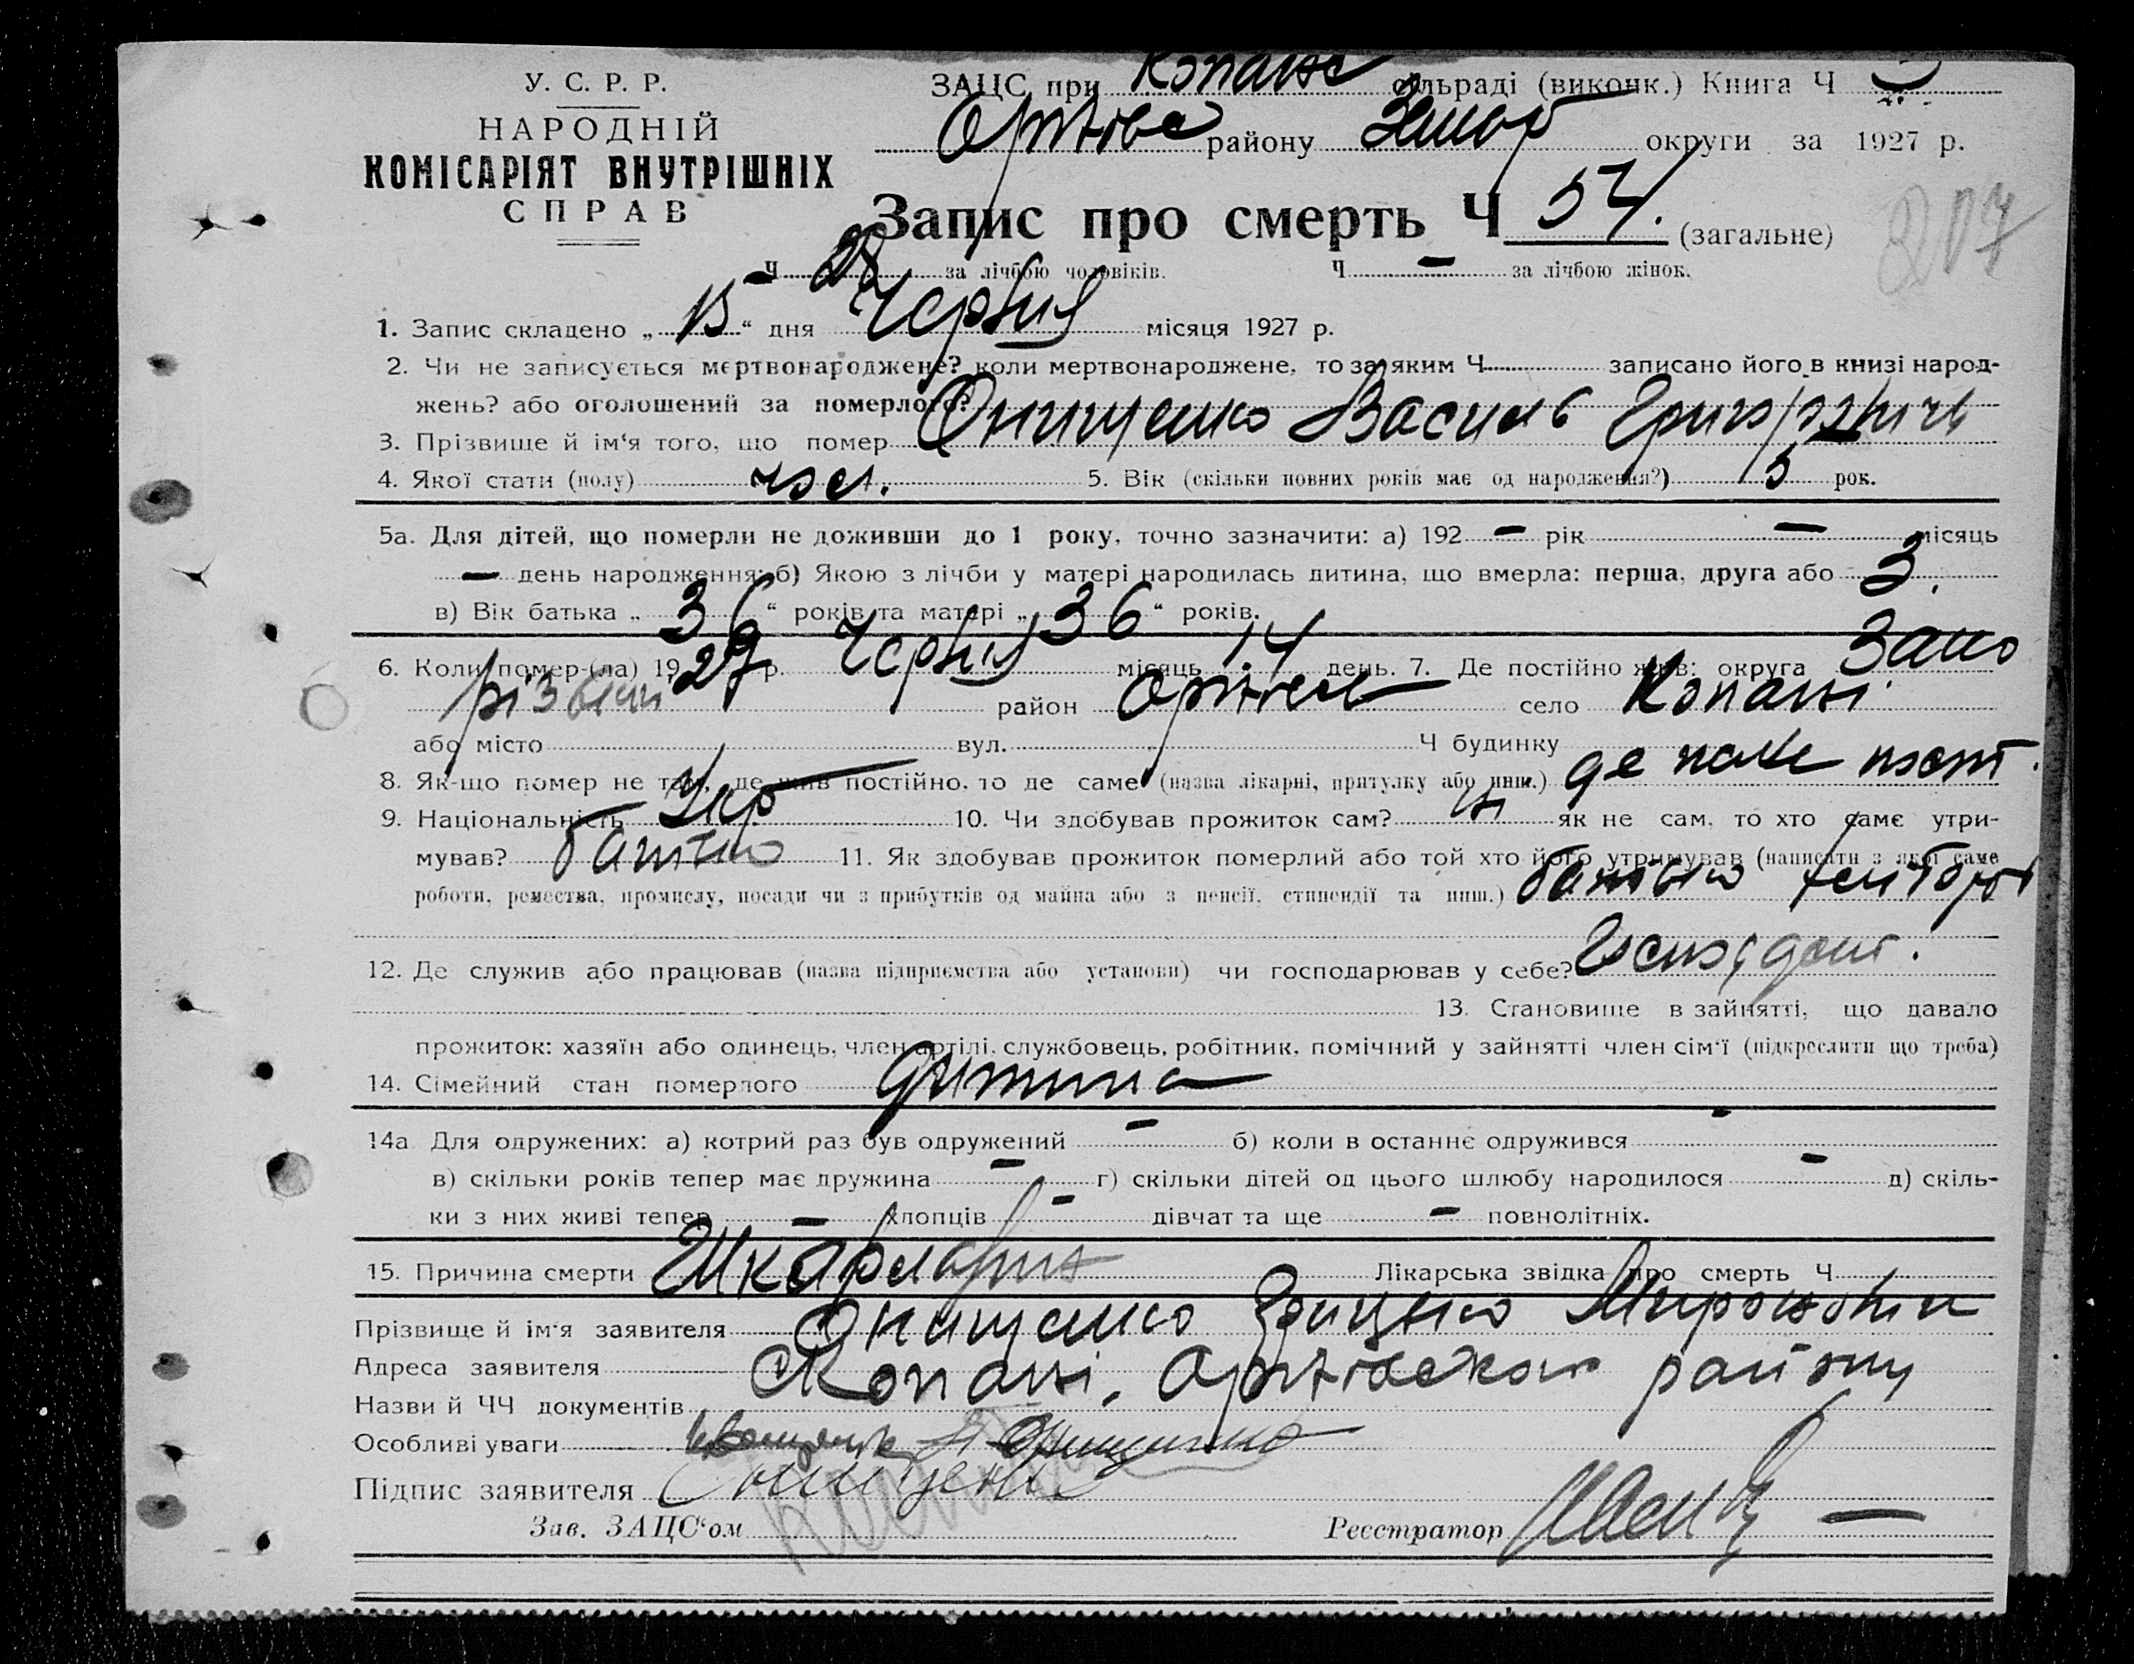 У. С. Р. Р.
НАРОДНІЙ
КОМІСАРІЯТ ВНУТРІШНІХ
СПРАВ
ЗАЦС при Копане сільраді (виконк.) Книга Ч
Оріхівс району Запор округи за 1927 р.
Запис про смерть Ч 54. (загальне)
207
Ч 28 за лічбою чоловіків. Ч — за лічбою жінок.
1. Запис складено „ 15 “ дня Червня місяця 1927 р.
2. Чи не записується мертвонароджене? коли мертвонароджене, то за яким Ч записано його в книзі народ-
жень? або оголошений за померлого?
3. Прізвище й ім‘я того, що помер Онищенко Василь Григорович
4. Якої стати (полу) чол. 5. Вік (скільки повних років має од народження?) 5 рок.
5а. Для дітей, що померли не доживши до 1 року, точно зазначити: а) 192 — рік — місяць
— день народження; б) Якою з лічби у матері народилась дитина, що вмерла: перша, друга або 3.
в) Вік батька „ 36 “ років та матері „ 36 “ років.
6. Коли помер-(ла) 1927 р. Червня місяць 14 день. 7. Де постійно жив: округа Запо
різький район Оріхів село Копані.
або місто вул. Ч будинку
8. Як-що помер не там, де жив постійно, то де саме (назва лікарні, притулку або инш.) де пост.
9. Національність Укр 10. Чи здобував прожиток сам? ні як не сам, то хто саме утри-
мував? батько 11. Як здобував прожиток померлий або той хто його утримував (написати з якої саме
роботи, ремества, промислу, посади чи з прибутків од майна або з пенсії, стипендії та инш.) батько хлібороб
12. Де служив або працював (назва підприємства або установи) чи господарював у себе?
13. Становище в зайнятті, що давало
прожиток: хазяїн або одинець, член артілі, службовець, робітник, помічний у зайнятті член сім‘ї (підкреслити що треба)
14. Сімейний стан померлого дитина
14а Для одружених: а) котрий раз був одружений — б) коли в останнє одружився -
в) скільки років тепер має дружина — г) скільки дітей од цього шлюбу народилося — д) скіль-
ки з них живі тепер — хлопців — дівчат та ще — повнолітніх.
15. Причина смерти Шкарлатина Лікарська звідка про смерть Ч
Прізвище й ім‘я заявителя Онищенко Грицько Миронович
Адреса заявителя Копані, Оріхівського району
Назви й ЧЧ документів
Особливі уваги Онищенко
Підпис заявителя Онищенко
Зав. ЗАЦС‘ом Реєстратор